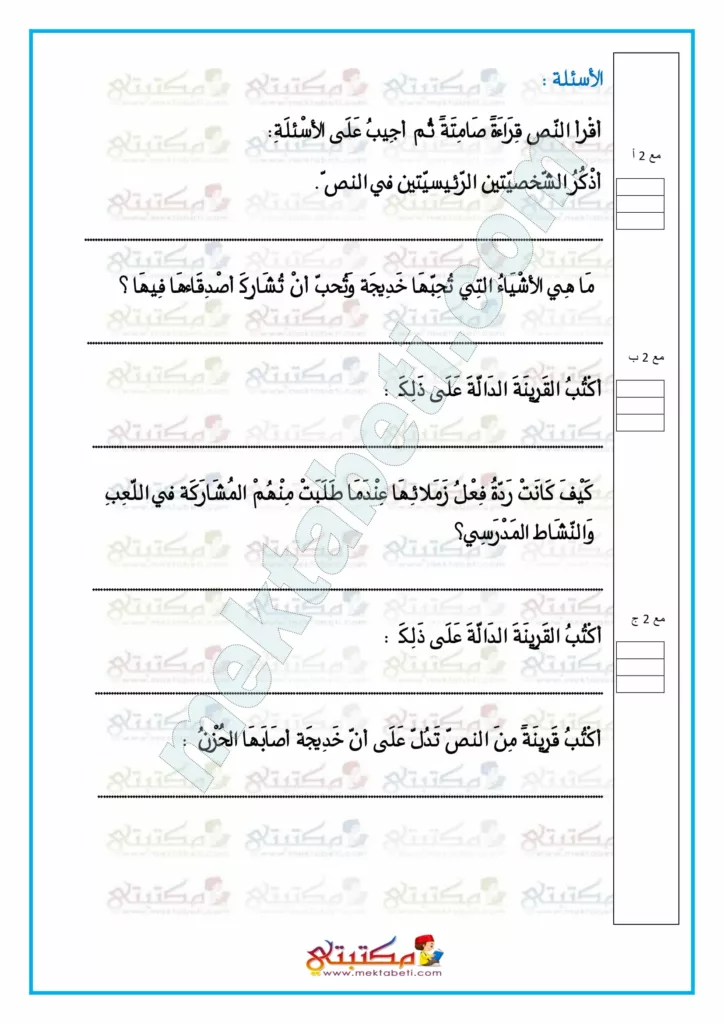 الأسئلة :
أقْرأ النّص قِرَاءَةً صَامِتَةً ثُم أجِيبُ عَلَى الأسْئلَةِ:
مع 2 أ
أذْكُرُ الشّخصيّتين الرّئيسيّتين في النصّ.
مَا هِي الأشْيَاءُ التِي تُحِبّهَا خَدِيجَة وَتُحبّ أنْ تُشَاركَ أصْدِقَاءهَا فِيهَا ؟
مع 2 ب
أكْتُبُ القَرِينَةَ الدَالّةَ عَلَى ذَلِكَ :
كَيْفَ كَانَتْ رَدّةُ فِعْلُ زَمَلائِهَا عِنْدَمَا طَلَبَتْ مِنْهُمْ المُشَارَكَة في اللّعِبِ
وَالنّشَاط المَدْرَسِي؟
مع 2 ج
أكْتُبُ القَرِينَةَ الدَالّةَ عَلَى ذَلِكَ :
أكْتُبُ قَرِينَةً مِنَ النصّ تَدُلّ عَلَى أنّ خَدِيجَة أصَابَهَا الحُزْنُ :
mektabeti.com
مكتبتي
www.mektabeti.com